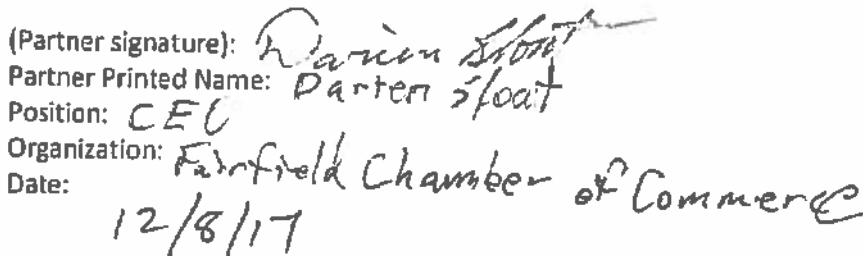 (Partner signature): Darren Sloat
Partner Printed Name: Darren Sloat
Position: CEO
Organization: Fairfield Chamber of Commerce
Date:
12/8/17